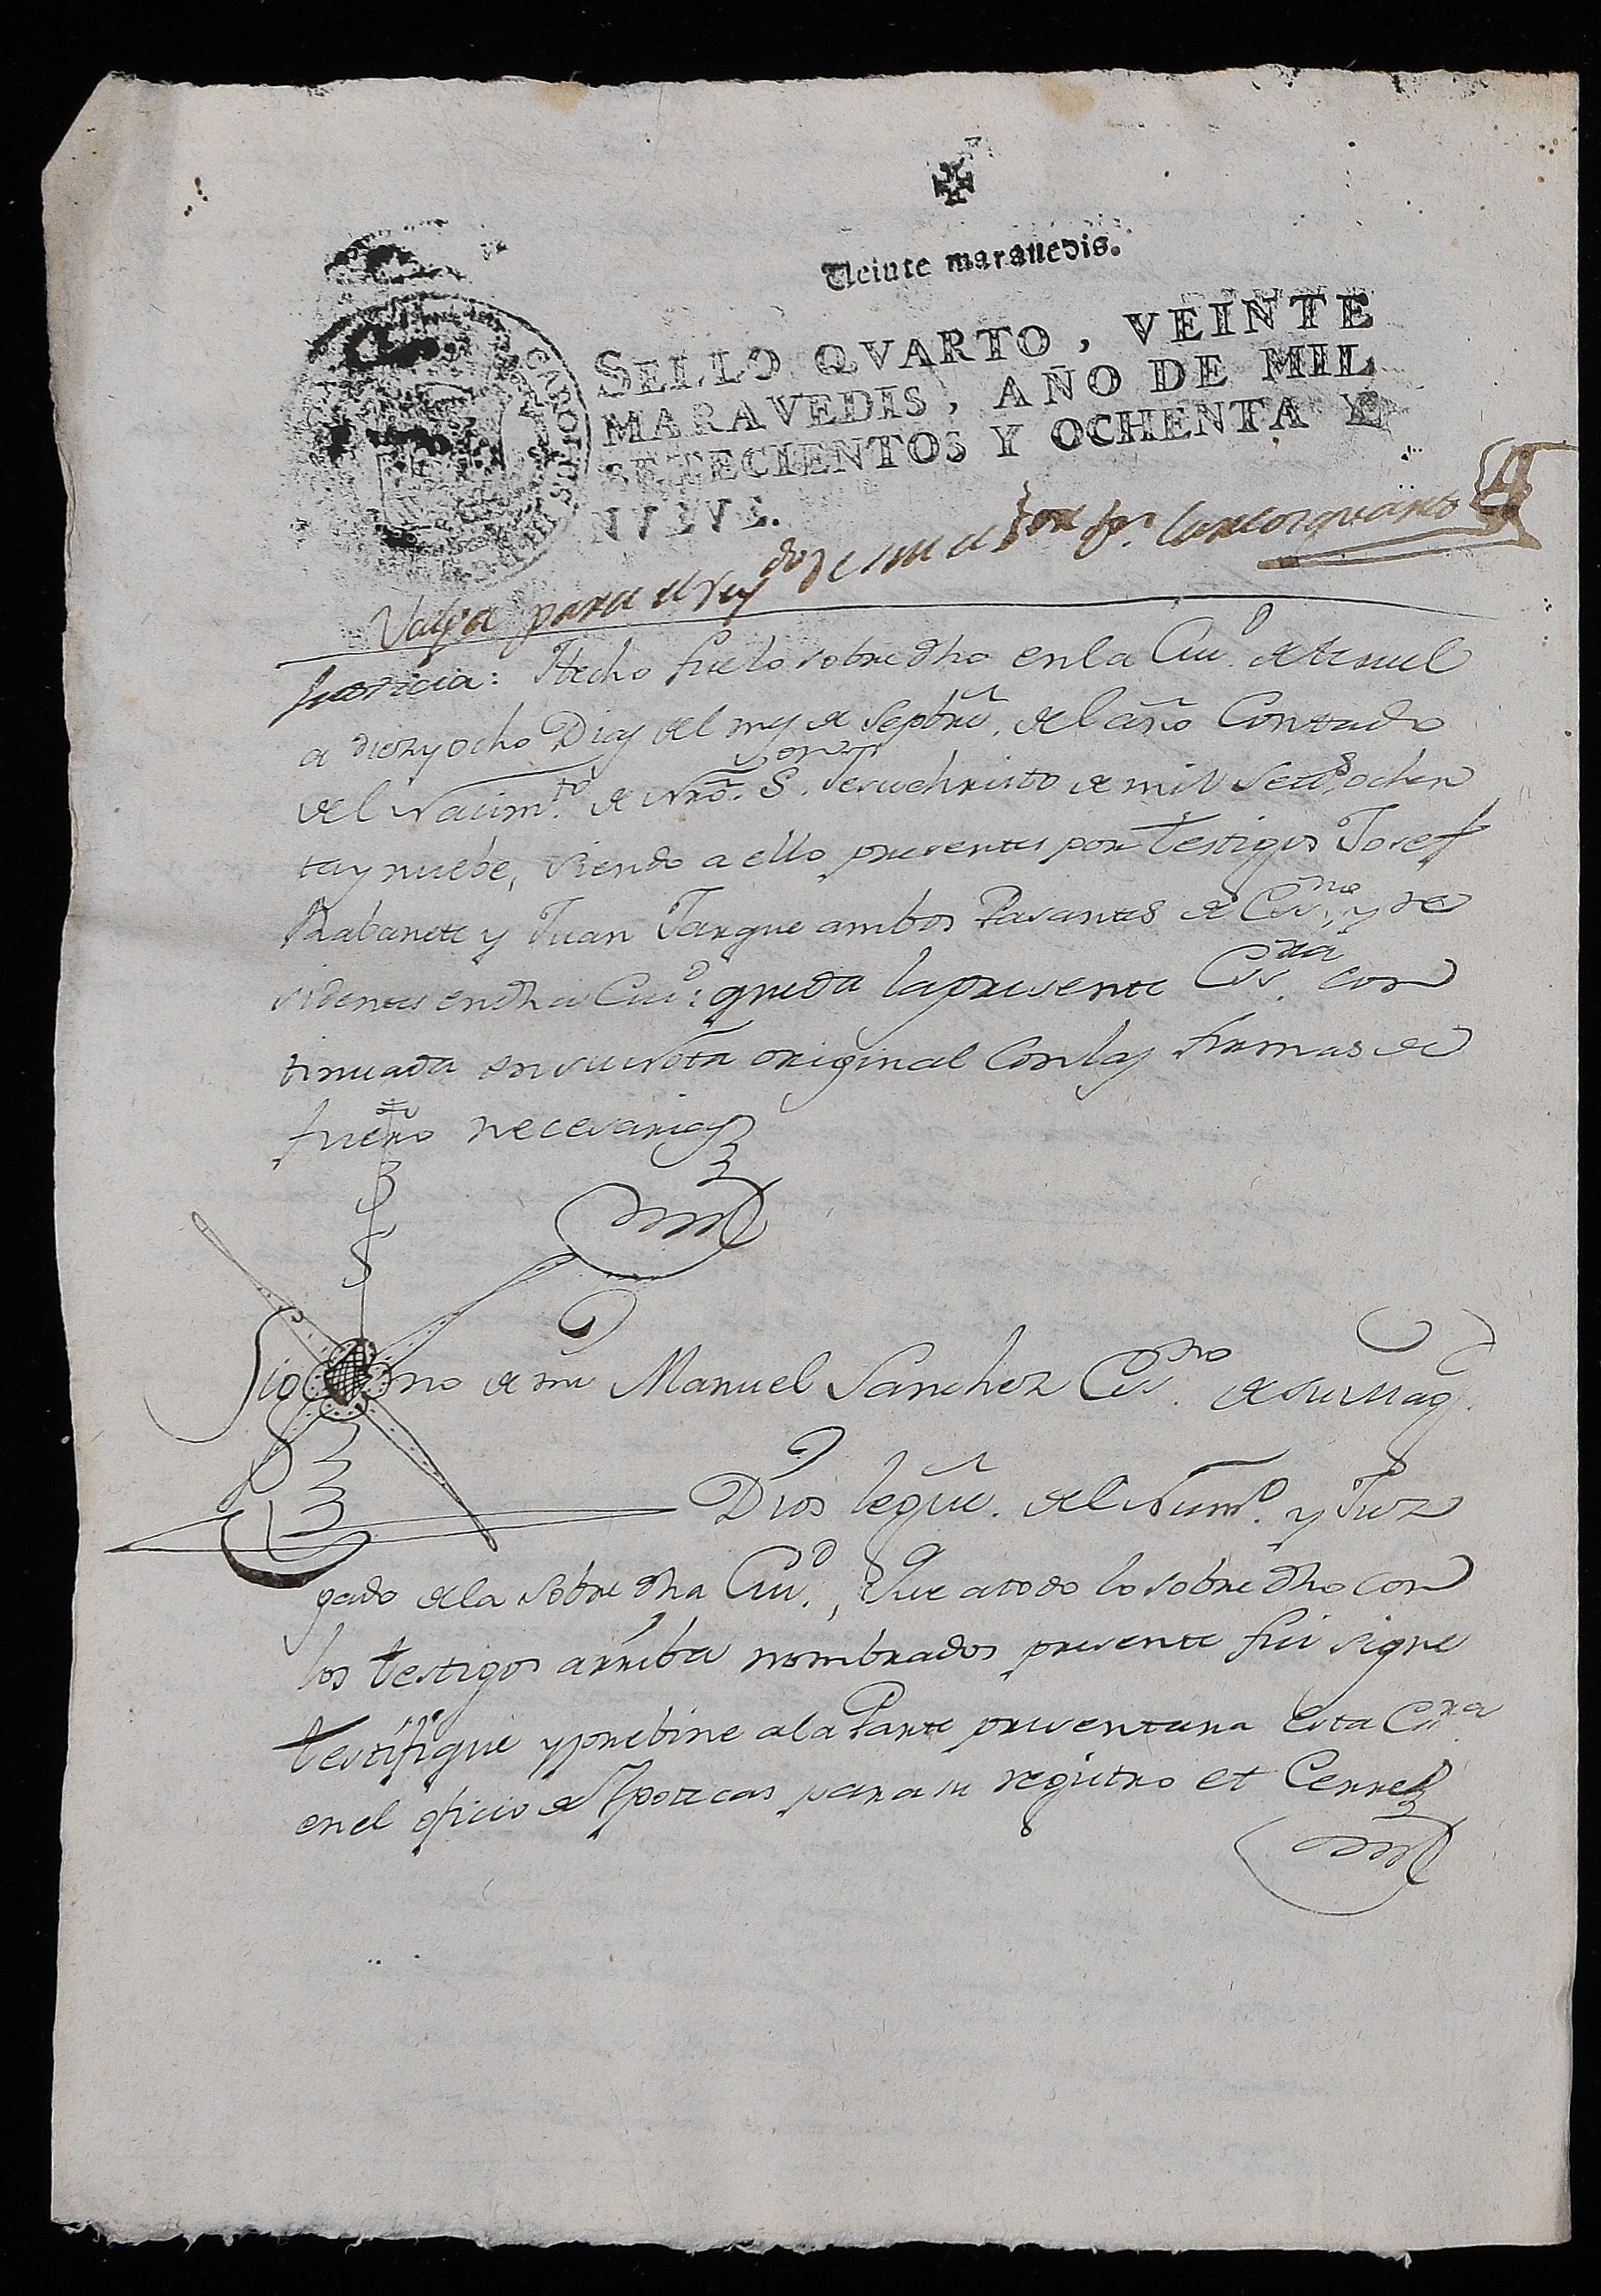 Veinte maravedis.
SELLO QVARTO, VEINTE
MARAVEDIS, AÑO DE MIL
SETECIENTOS Y OCHENTA Y
NVEVE.
CAROLUS
Valga para el Rey
Justicia: Hecho fue lo sobre dho en la Ciud. de teruel
a diez y ocho Dias del mes de Septbre. del año Contado
del Nacimto. de Nro. Sor. Jesuchristo de mil Setes. ochen
ta y nuebe, siendo a ello presentes por testigos Josef
Rabanete y Juan Jarque ambos Pasantes de Essno. y re
sidentes en dha Ciud. queda la presente Essra. con
tinuada en su Nota original con las firmas de
fuero necesarias
Sig no de mi Manuel Sanchez Essno. de su Mag.
Dios le gue. del Numo. y Juz
gado de la sobre dha Ciud., Que a todo lo sobre dho con
los testigos arriba nombrados presente fui signe
testifique y prebine a la Parte presentara esta Essra
en el oficio de Ypotecas para su registro et Cerre